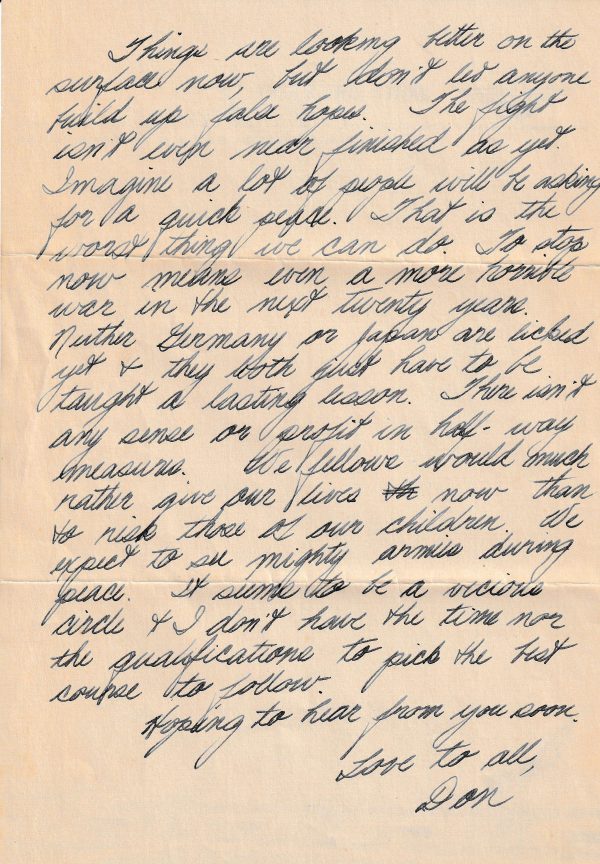 Things are looking better on the
surface now, but don't let anyone
build up false hopes. The fight
isn't even near finished as yet.
Imagine a lot of people will be asking
for a quick peace. That is the
worst thing we can do. To stop
now means even a more horrible
war in the next twenty years.
Neither Germany or Japan are licked
yet & they both just have to be
taught a lasting lesson. There isn't
any sense or profit in half-way
measures. We fellows would much
rather give our lives th now than
to risk those of our children. We
expect to see mighty armies during
peace. It seems to be a vicious
circle & I don't have the time nor
the qualifications to pick the best
course to follow.
Hoping to hear from you soon.
Love to all,
Don